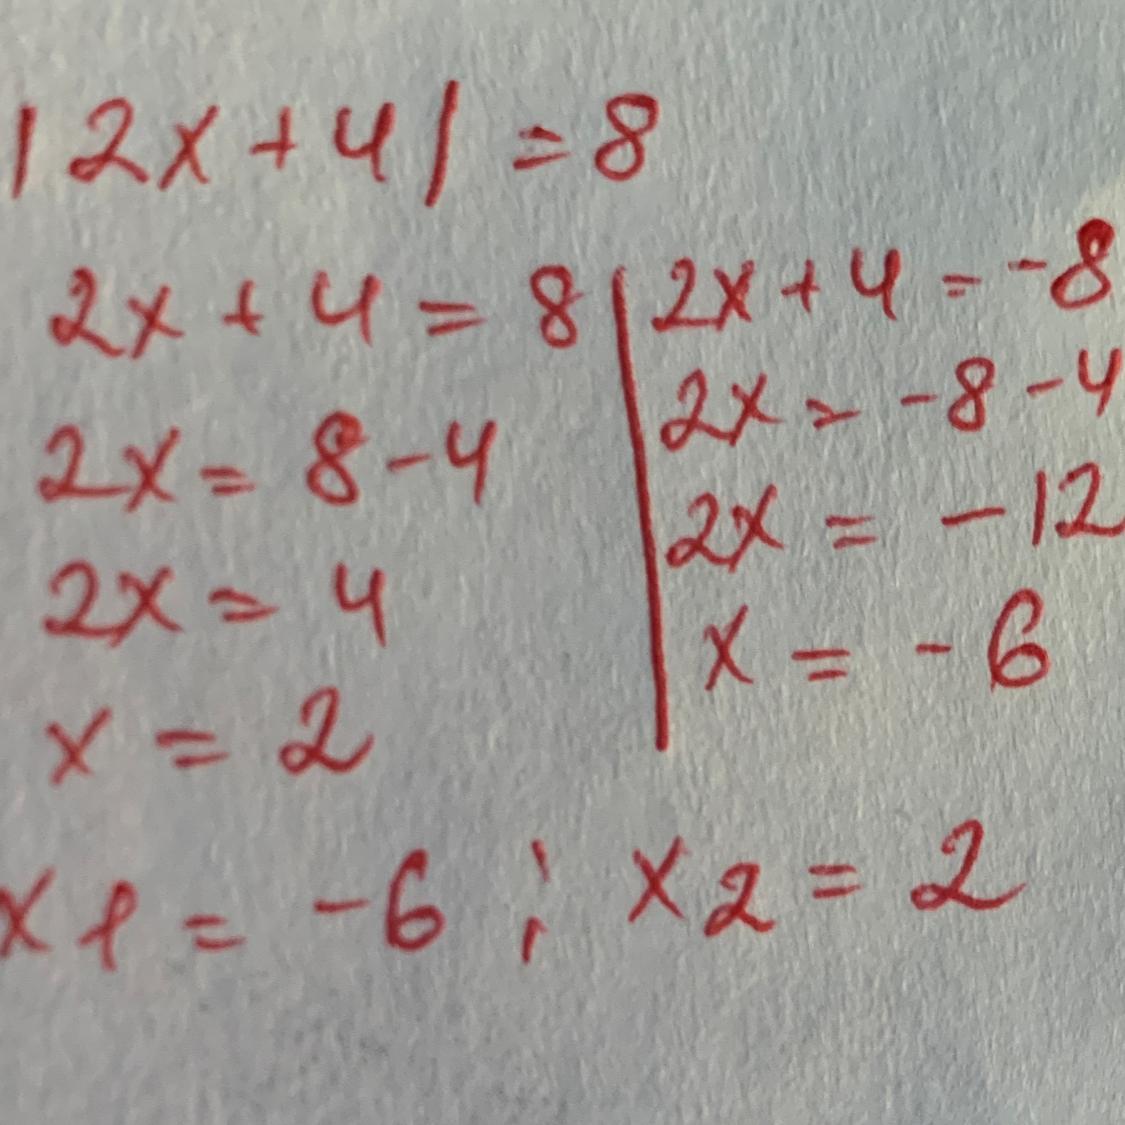 |2x+4|=8
2x+4=8
2x=8-4
2x=4
x=2
2x+4=-8
2x=-8-4
2x=-12
x=-6
x1=-6; x2=2